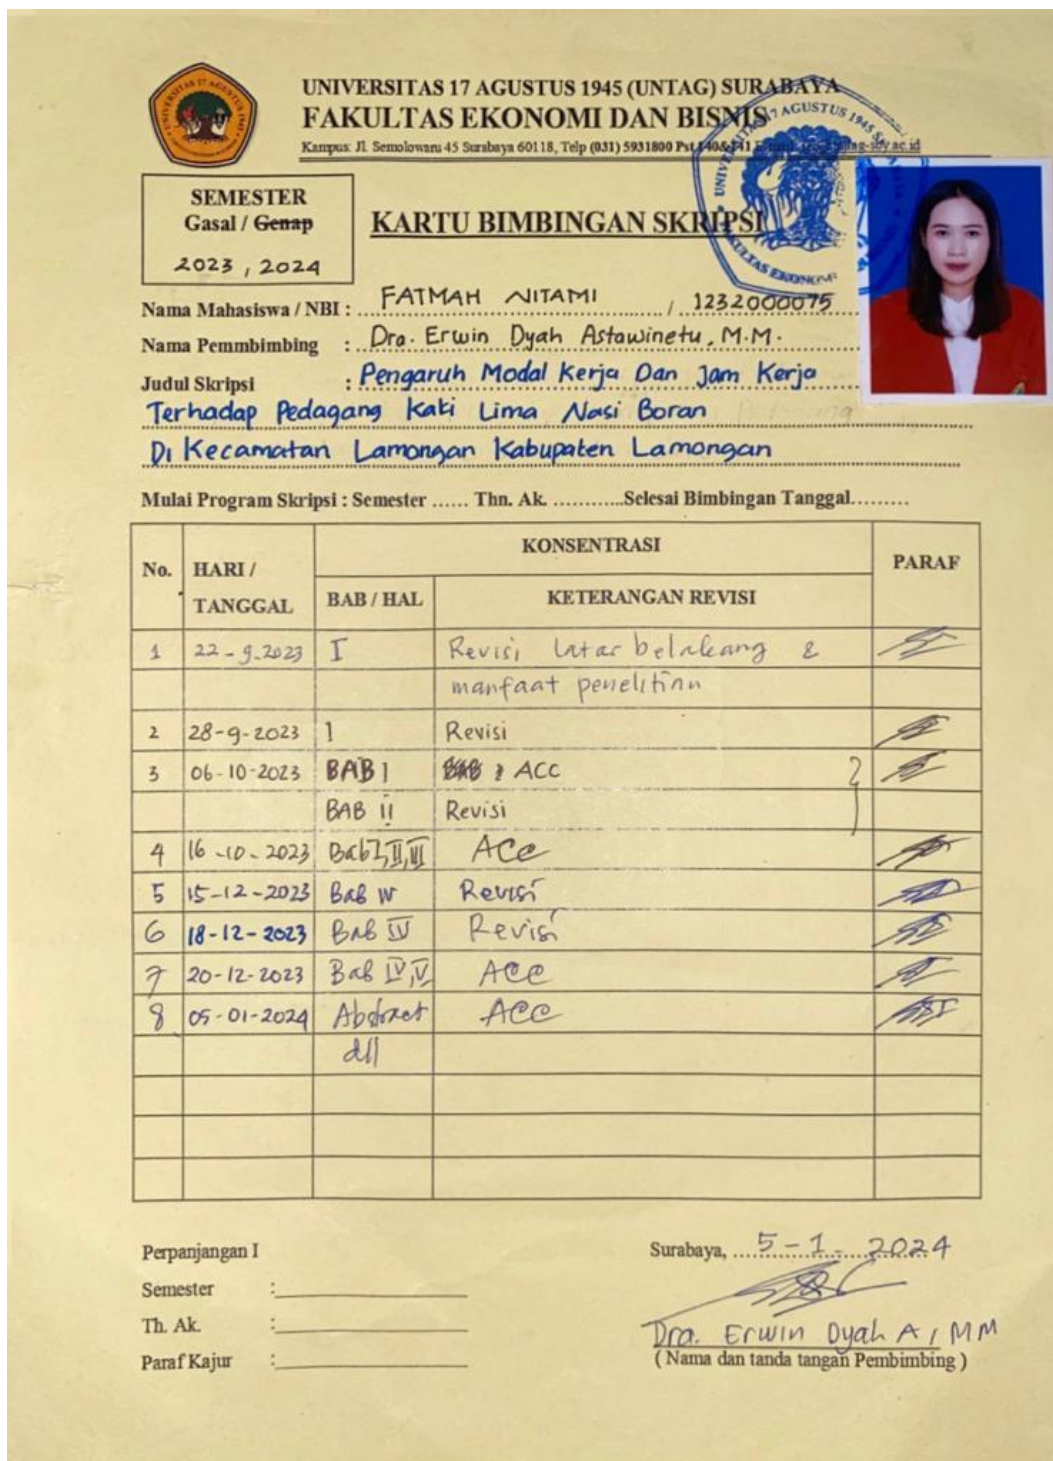 UNIVERSITAS 17 AGUSTUS 1945 (UNTAG) SURABAYA
FAKULTAS EKONOMI DAN BISNIS
Kampus: Jl. Semolowaru 45 Surabaya 60118, Telp (031) 5931800 Pst 140&141
SEMESTER
Gasal / Genap
2023, 2024
KARTU BIMBINGAN SKRIPSI
Nama Mahasiswa / NBI : FATMAH NITAMI / 1232000075
Nama Pemmbimbing : Dra. Erwin Dyah Astawinetu, M.M.
Judul Skripsi : Pengaruh Modal Kerja Dan Jam Kerja
Terhadap Pedagang Kaki Lima Nasi Boran
Di Kecamatan Lamongan Kabupaten Lamongan
Mulai Program Skripsi : Semester ...... Thn. Ak. ............Selesai Bimbingan Tanggal.........
No. HARI / TANGGAL KONSENTRASI PARAF
BAB / HAL KETERANGAN REVISI
1 22-9-2023 I Revisi latar belakang &
manfaat penelitian
2 28-9-2023 1 Revisi
3 06-10-2023 BAB I ACC
BAB II Revisi
4 16-10-2023 Bab I, II, III ACC
5 15-12-2023 Bab IV Revisi
6 18-12-2023 Bab IV Revisi
7 20-12-2023 Bab IV, V ACC
8 05-01-2024 Abstract ACC
dll
Perpanjangan I
Semester :
Th. Ak. :
Paraf Kajur :
Surabaya, 5-1-2024
Dra. Erwin Dyah A, MM
( Nama dan tanda tangan Pembimbing )